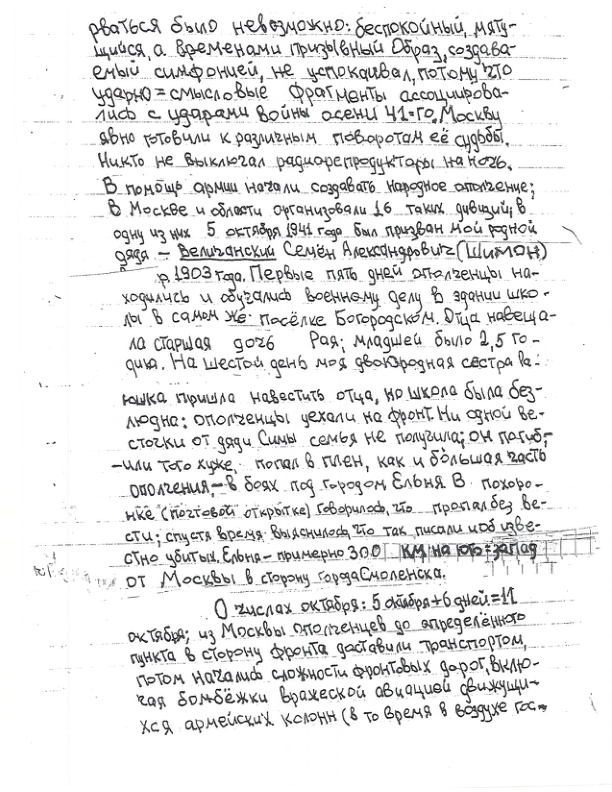 рваться было невозможно: беспокойный, мяту-
щийся, а временами призывный Образ, создава-
емый симфонией, не успокаивал, потому что
ударно=смысловые фрагменты ассоциирова-
лись с ударами войны осени 41=го, Москву
явно готовили к различным поворотам её судьбы.
Никто не выключал радиорепродукторы на ночь.
В помощь армии начали создавать народное ополчение;
В Москве и области организовали 16 таких дивизий; в
одну из них 5 октября 1941 года был призван мой родной
дядя – Величанский Семён Александрович (Шимон)
р. 1903 года. Первые пять дней ополченцы на-
ходились и обучались военному делу в здании шко-
лы в самом же посёлке Богородском. Отца навеща-
ла старшая дочь Рая; младшей было 2,5 го-
дика. На шестой день моя двоюродная сестра Ра-
юшка пришла навестить отца, но школа была без-
людна: ополченцы уехали на фронт. Ни одной ве-
сточки от дяди Симы семья не получила; он погиб,-
-или того хуже, попал в плен, как и бо́льшая часть
ополчения,- в боях под городом Ельня. В похоро-
нке (почтовой открытке) говорилось, что пропал без ве-
сти; спустя время выяснилось, что так писали и об изве-
стно убитых. Ельня – примерно 300 км на юго=запад
от Москвы в сторону города Смоленска.
О числах октября: 5 октября+6 дней=11
октября; из Москвы ополченцев до определённого
пункта в сторону фронта доставили транспортом,
потом начались сложности фронтовых дорог, вклю-
чая бомбёжки вражеской авиацией движущи-
хся армейских колонн (в то время в воздухе гос-